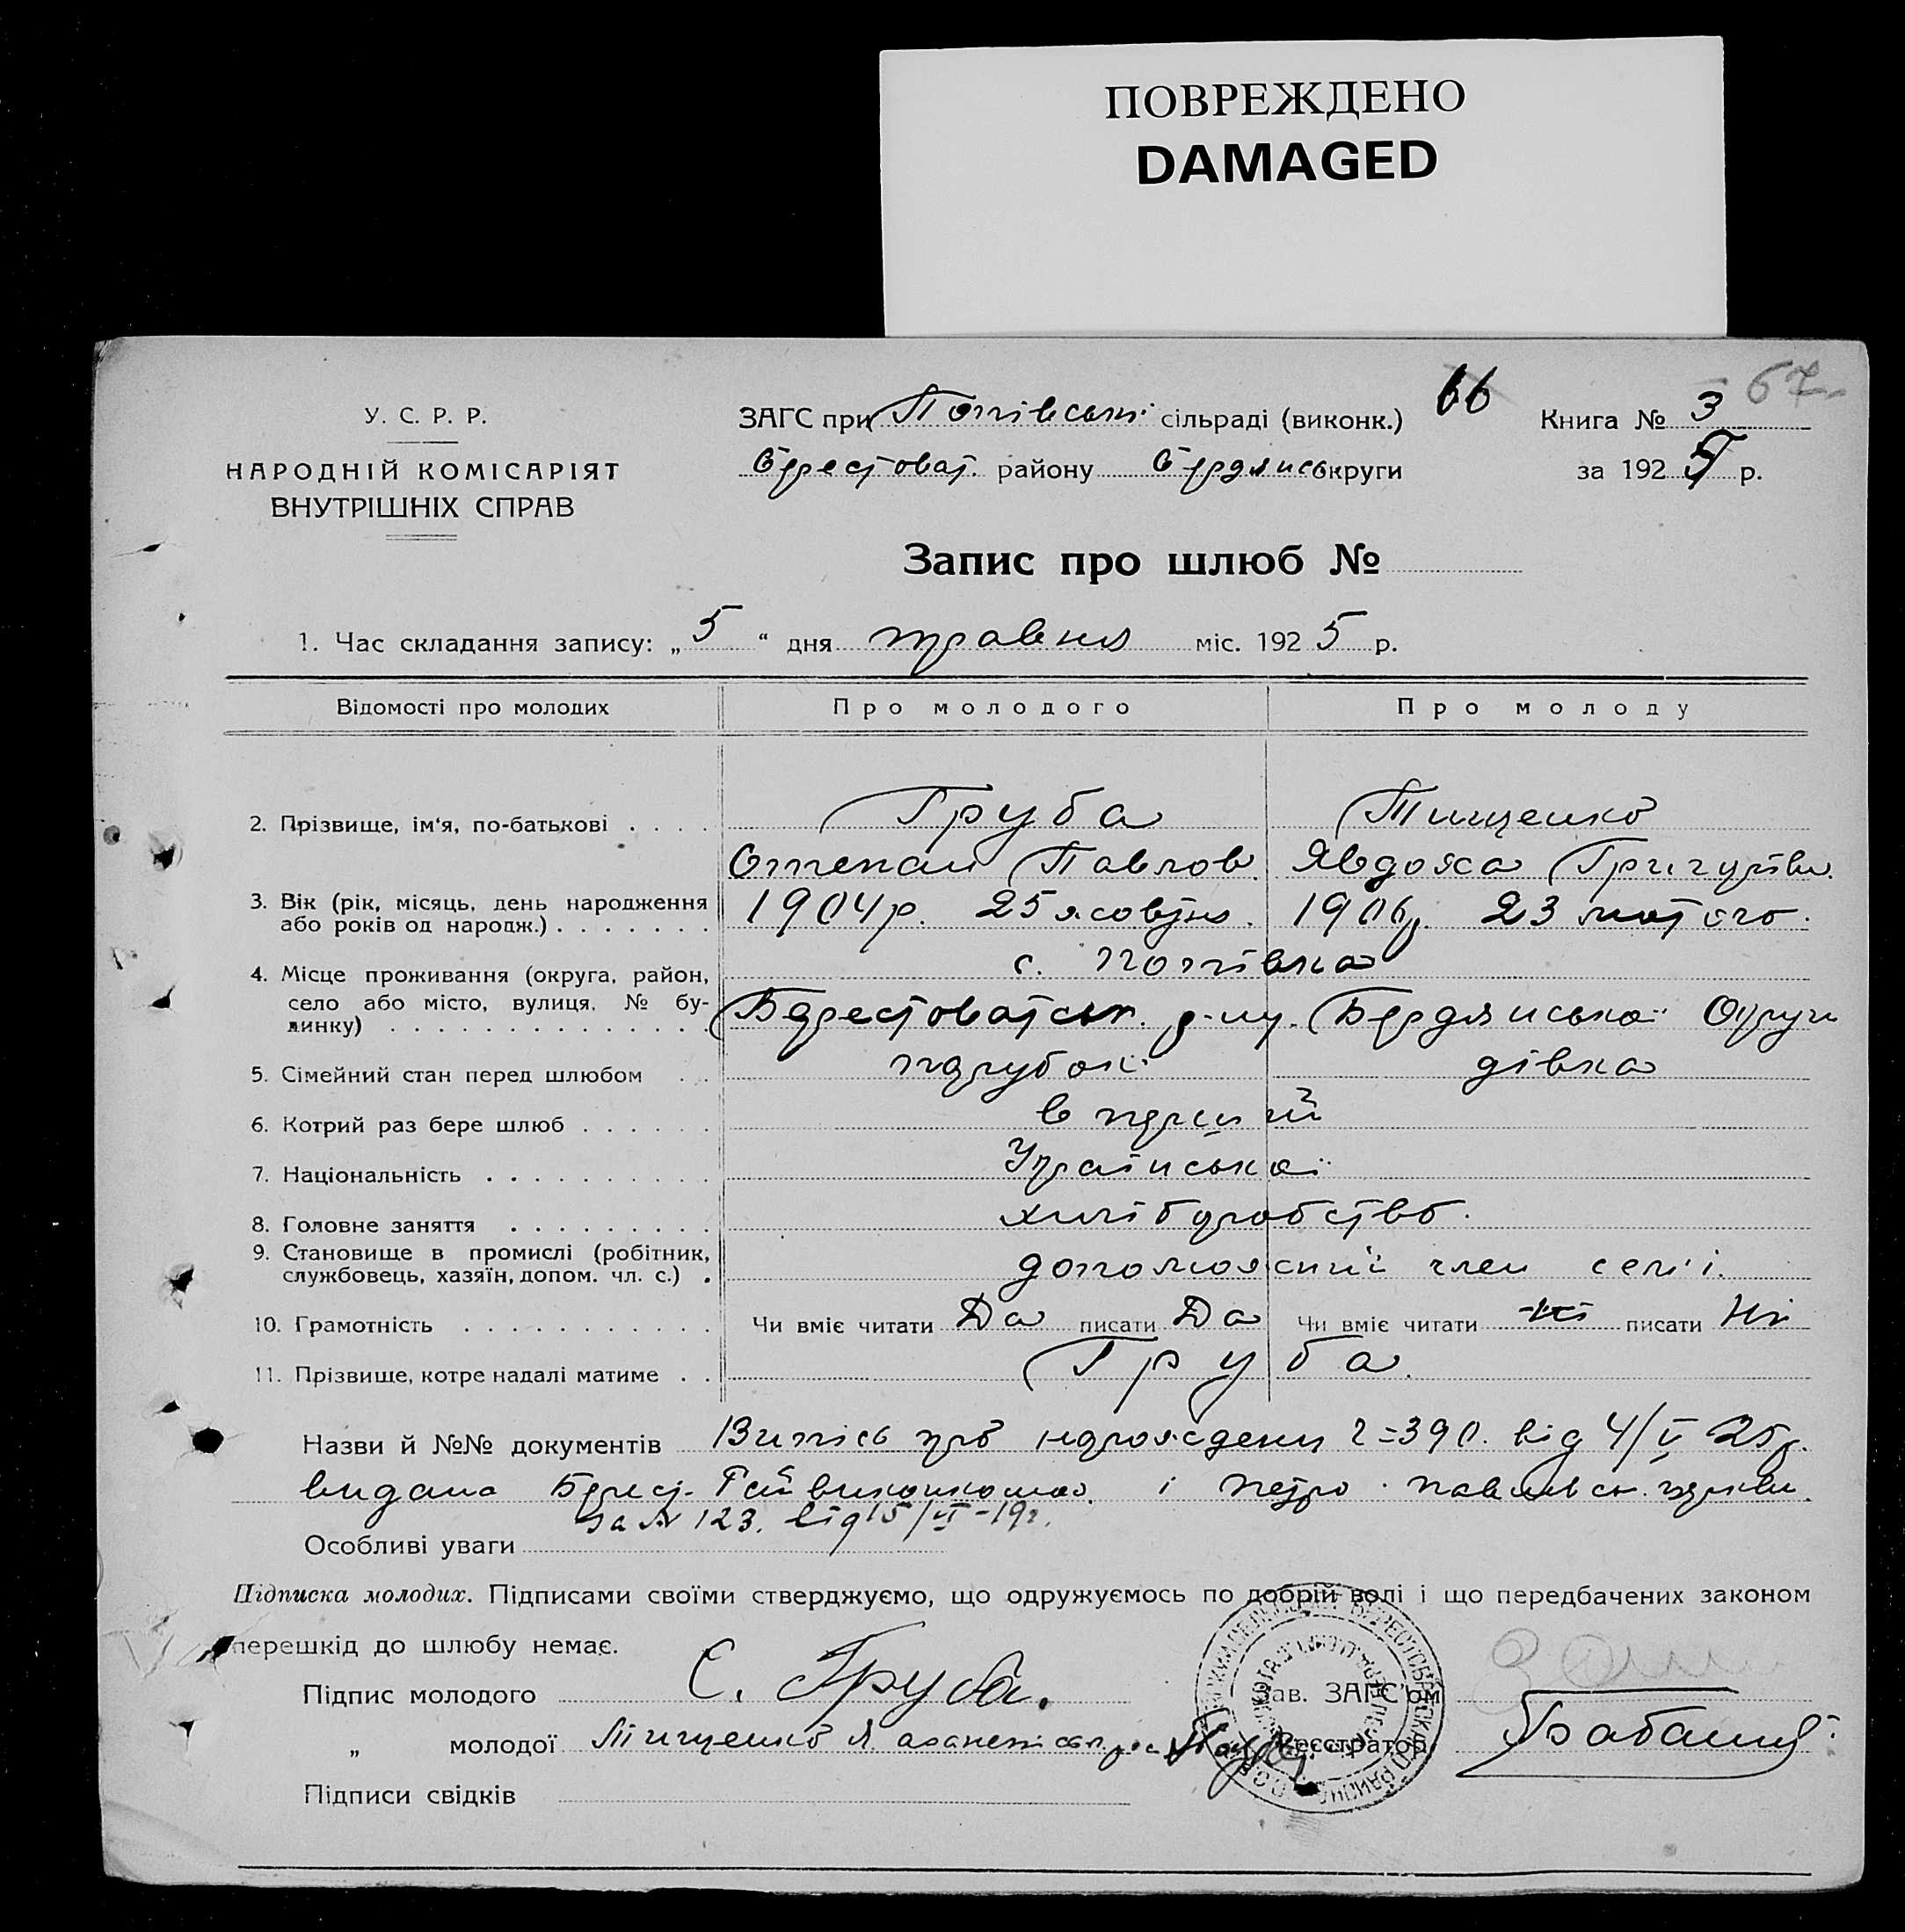 ПОВРЕЖДЕНО
DAMAGED
67
66
У. С. Р. Р.
НАРОДНІЙ КОМІСАРІЯТ
ВНУТРІШНІХ СПРАВ
ЗАГС при сільраді (виконк.)
Берестоват. району Бердянськ округи
Книга № 3
за 1925 р.
Запис про шлюб №
1. Час складання запису: „5“ дня травня міс. 1925 р.
Відомості про молодих Про молодого Про молоду
2. Прізвище, ім'я, по-батькові . . . . Груба Тищенко
Степан Павлов. Явдоха Григурівн.
3. Вік (рік, місяць, день народження
або років од народж.) . . . . . . . 1904 р. 25 1906 р. 23 лютого.
4. Місце проживання (округа, район,
село або місто, вулиця, № бу-
динку) . . . . . . . . . . . . . . с. Попівка
Берестоватськ. р-ну. Бердянської Округи
5. Сімейний стан перед шлюбом . . парубок дівка
6. Котрий раз бере шлюб . . . . . . в перший
7. Національність . . . . . . . . . . Української
8. Головне заняття . . . . . . . . . хліборобство.
9. Становище в промислі (робітник,
службовець, хазяїн, допом. чл. с.) . допоможний член сем'ї.
10. Грамотність . . . . . . . . . . . . Чи вміє читати Да писати Да Чи вміє читати ні писати Ні
11. Прізвище, котре надалі матиме . . Груба.
Назви й №№ документів Випісь про ч=390. від 4/V 25 р.
видана Берест. Райвиконкомом. і Петро-Павлівськ. церкви.
за № 123. від 15/VI-19
Особливі уваги
Підписка молодих. Підписами своїми стверджуємо, що одружуємось по добрій волі і що передбачених законом
перешкід до шлюбу немає.
Підпис молодого С. Груба.
Зав. ЗАГС'ом
„ молодої Тищенко Я.
Реєстратор
Підписи свідків